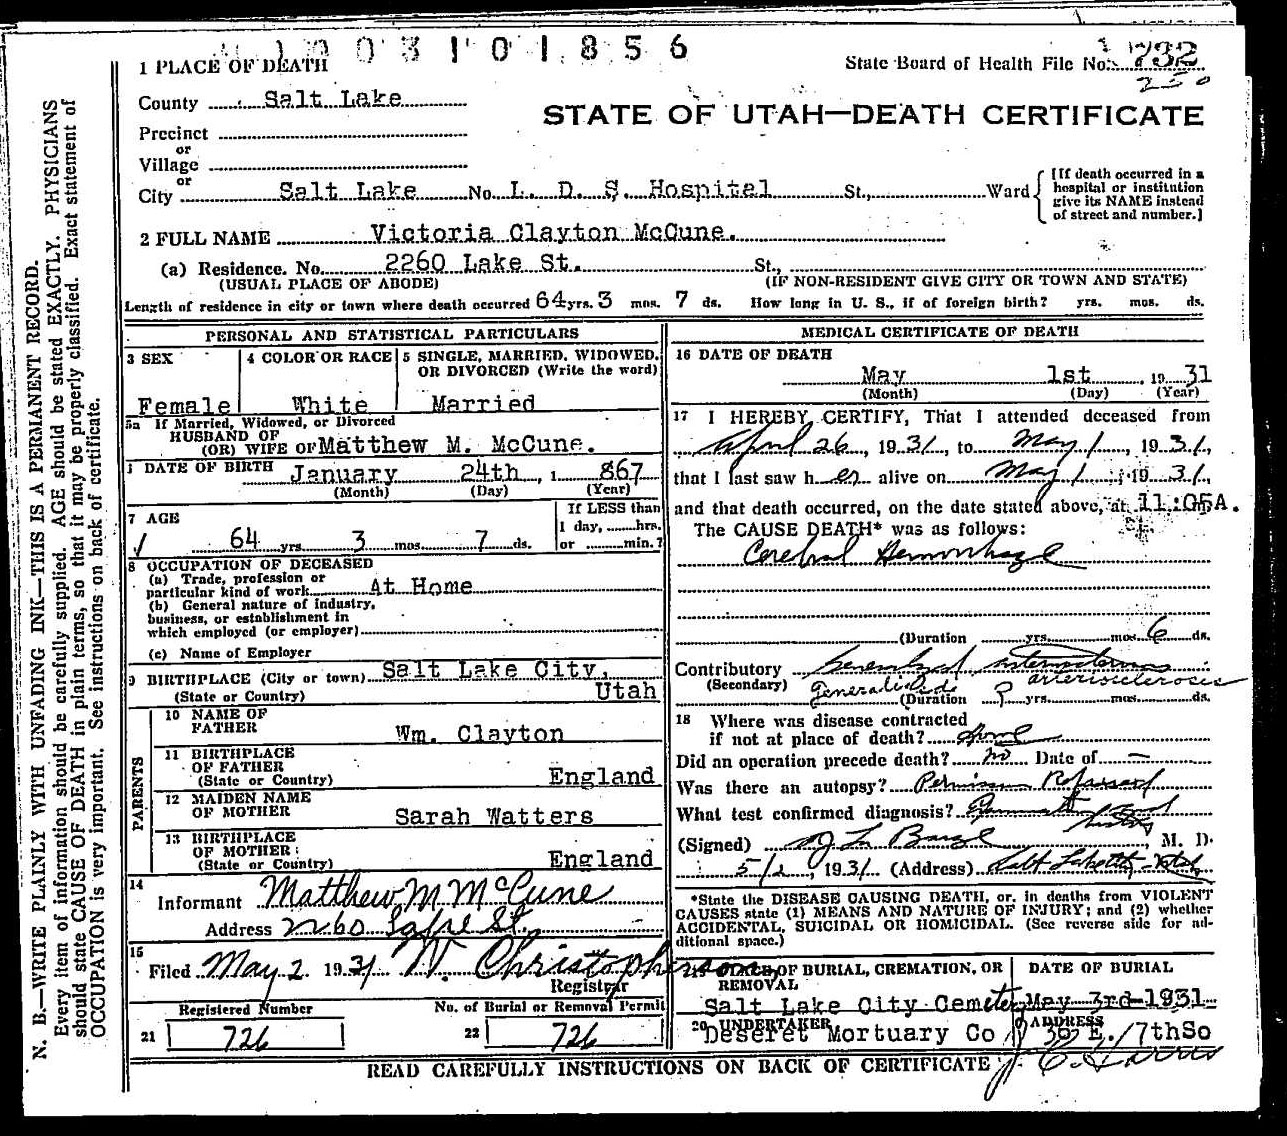 1003101856
1 PLACE OF DEATH
State Board of Health File No. 732
250
County Salt Lake
STATE OF UTAH—DEATH CERTIFICATE
Precinct
or
Village
or
City Salt Lake No. L. D. S. Hospital St., Ward
[If death occurred in a
hospital or institution
give its NAME instead
of street and number.]
2 FULL NAME Victoria Clayton McCune.
(a) Residence. No. 2260 Lake St. St.,
(USUAL PLACE OF ABODE) (IF NON-RESIDENT GIVE CITY OR TOWN AND STATE)
Length of residence in city or town where death occurred 64 yrs. 3 mos. 7 ds. How long in U. S., if of foreign birth? yrs. mos. ds.
PERSONAL AND STATISTICAL PARTICULARS
3 SEX
Female
4 COLOR OR RACE
White
5 SINGLE, MARRIED, WIDOWED,
OR DIVORCED (Write the word)
Married
5a If Married, Widowed, or Divorced
HUSBAND OF
(OR) WIFE OF Matthew M. McCune.
DATE OF BIRTH January 24th, 1867
(Month) (Day) (Year)
7 AGE
64 yrs. 3 mos. 7 ds.
If LESS than
1 day, hrs.
or min.?
8 OCCUPATION OF DECEASED
(a) Trade, profession or
particular kind of work At Home
(b) General nature of industry,
business, or establishment in
which employed (or employer)
(c) Name of Employer
9 BIRTHPLACE (City or town) Salt Lake City,
(State or Country) Utah
PARENTS
10 NAME OF
FATHER Wm. Clayton
11 BIRTHPLACE
OF FATHER
(State or Country) England
12 MAIDEN NAME
OF MOTHER Sarah Watters
13 BIRTHPLACE
OF MOTHER:
(State or Country) England
14
Informant Matthew M McCune
Address 2260 Lake St.
15
Filed May 2 1931 W. Christopherson
Registrar
Registered Number
21 726
No. of Burial or Removal Permit
22 726
MEDICAL CERTIFICATE OF DEATH
16 DATE OF DEATH
May 1st, 1931
(Month) (Day) (Year)
17 I HEREBY CERTIFY, That I attended deceased from
April 26, 1931, to May 1, 1931,
that I last saw her alive on May 1, 1931,
and that death occurred, on the date stated above, at 11:05A.m.
The CAUSE DEATH* was as follows:
Cerebral Hemorrhage
(Duration yrs. mos. 6 ds.
Contributory Generalized arteriosclerosis
(Secondary) Generalized arteriosclerosis
(Duration ? yrs. mos. ds.
18 Where was disease contracted
if not at place of death? Home
Did an operation precede death? no Date of —
Was there an autopsy? Permission Refused
What test confirmed diagnosis? and
history
(Signed) M. D.
5/2, 1931 (Address) Salt Lake City Utah
*State the DISEASE CAUSING DEATH, or, in deaths from VIOLENT
CAUSES state (1) MEANS AND NATURE OF INJURY; and (2) whether
ACCIDENTAL, SUICIDAL OR HOMICIDAL. (See reverse side for additional
space.)
19 PLACE OF BURIAL, CREMATION, OR
REMOVAL
Salt Lake City Cemetery
DATE OF BURIAL
May 3rd-1931
20 UNDERTAKER
Deseret Mortuary Co
ADDRESS
36 E. 7thSo
J. C. Harris
READ CAREFULLY INSTRUCTIONS ON BACK OF CERTIFICATE
N. B.—WRITE PLAINLY WITH UNFADING INK—THIS IS A PERMANENT RECORD.
Every item of information should be carefully supplied. AGE should be stated EXACTLY. PHYSICIANS
should state CAUSE OF DEATH in plain terms, so that it may be properly classified. Exact statement of
OCCUPATION is very important. See instructions on back of certificate.